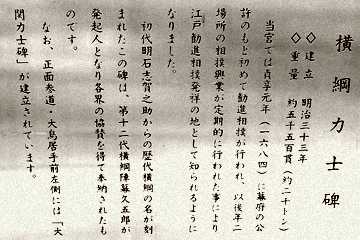 横綱力士碑
◇建立　明治三十三年
◇重量　約五千五百貫（約二十トン）
当宮では貞享元年（一六八四）に幕府の公
許のもと初めて勧進相撲が行われ、以後年二
場所の相撲興業が定期的に行われた事により
江戸勧進相撲発祥の地として知られるように
なりました。
初代明石志賀之助からの歴代横綱の名が刻
まれたこの碑は、第十二代横綱陣幕久五郎が
発起人となり各界の協賛を得て奉納されたも
のです。
なお、正面参道、大鳥居手前左側には「大
関力士碑」が建立されています。